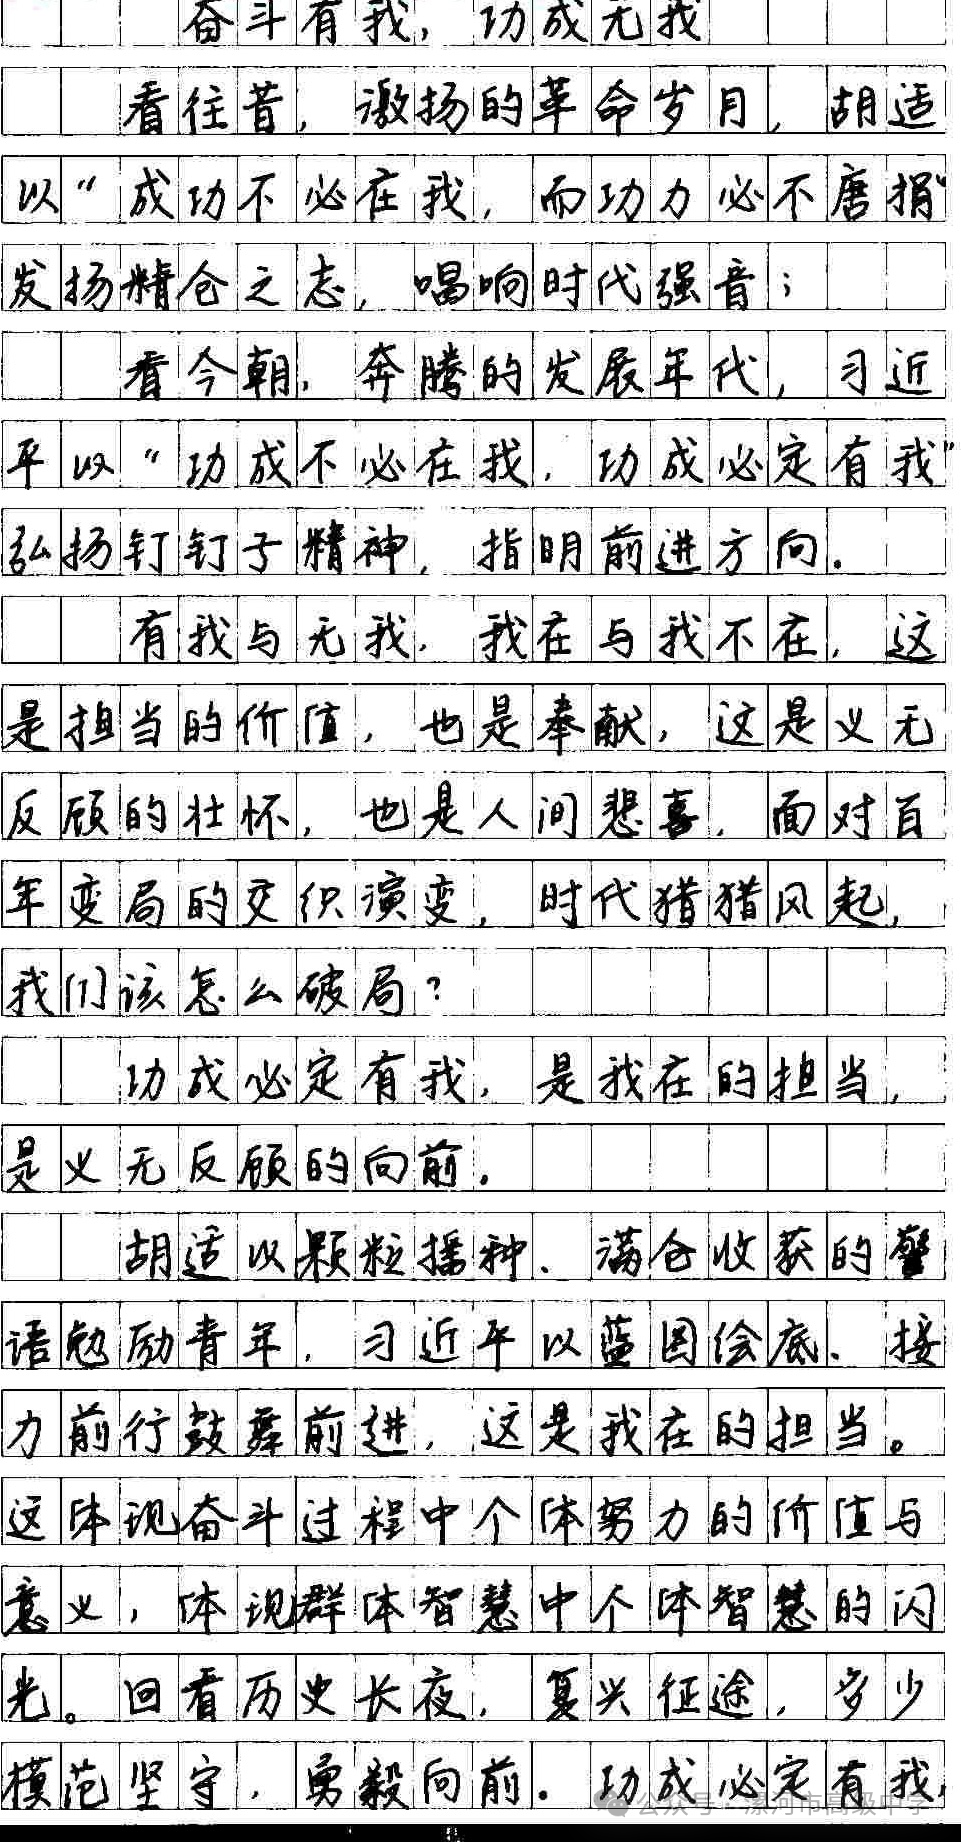 奋斗有我，功成无我
看往昔，激扬的革命岁月，胡适
以“成功不必在我，而功力必不唐捐”
发扬精仓之志，唱响时代强音；
看今朝，奔腾的发展年代，习近
平以“功成不必在我，功成必定有我”
弘扬钉钉子精神，指明前进方向。
有我与无我，我在与我不在，这
是担当的价值，也是奉献，这是义无
反顾的壮怀，也是人间悲喜，面对百
年变局的交织演变，时代猎猎风起，
我们该怎么破局？
功成必定有我，是我在的担当，
是义无反顾的向前。
胡适以颗粒播种、满仓收获的譬
语勉励青年，习近平以蓝图绘底、接
力前行鼓舞前进，这是我在的担当。
这体现奋斗过程中个体努力的价值与
意义，体现群体智慧中个体智慧的闪
光。回看历史长夜，复兴征途，多少
模范坚守，勇毅向前。功成必定有我，
公众号·漯河市高级中学